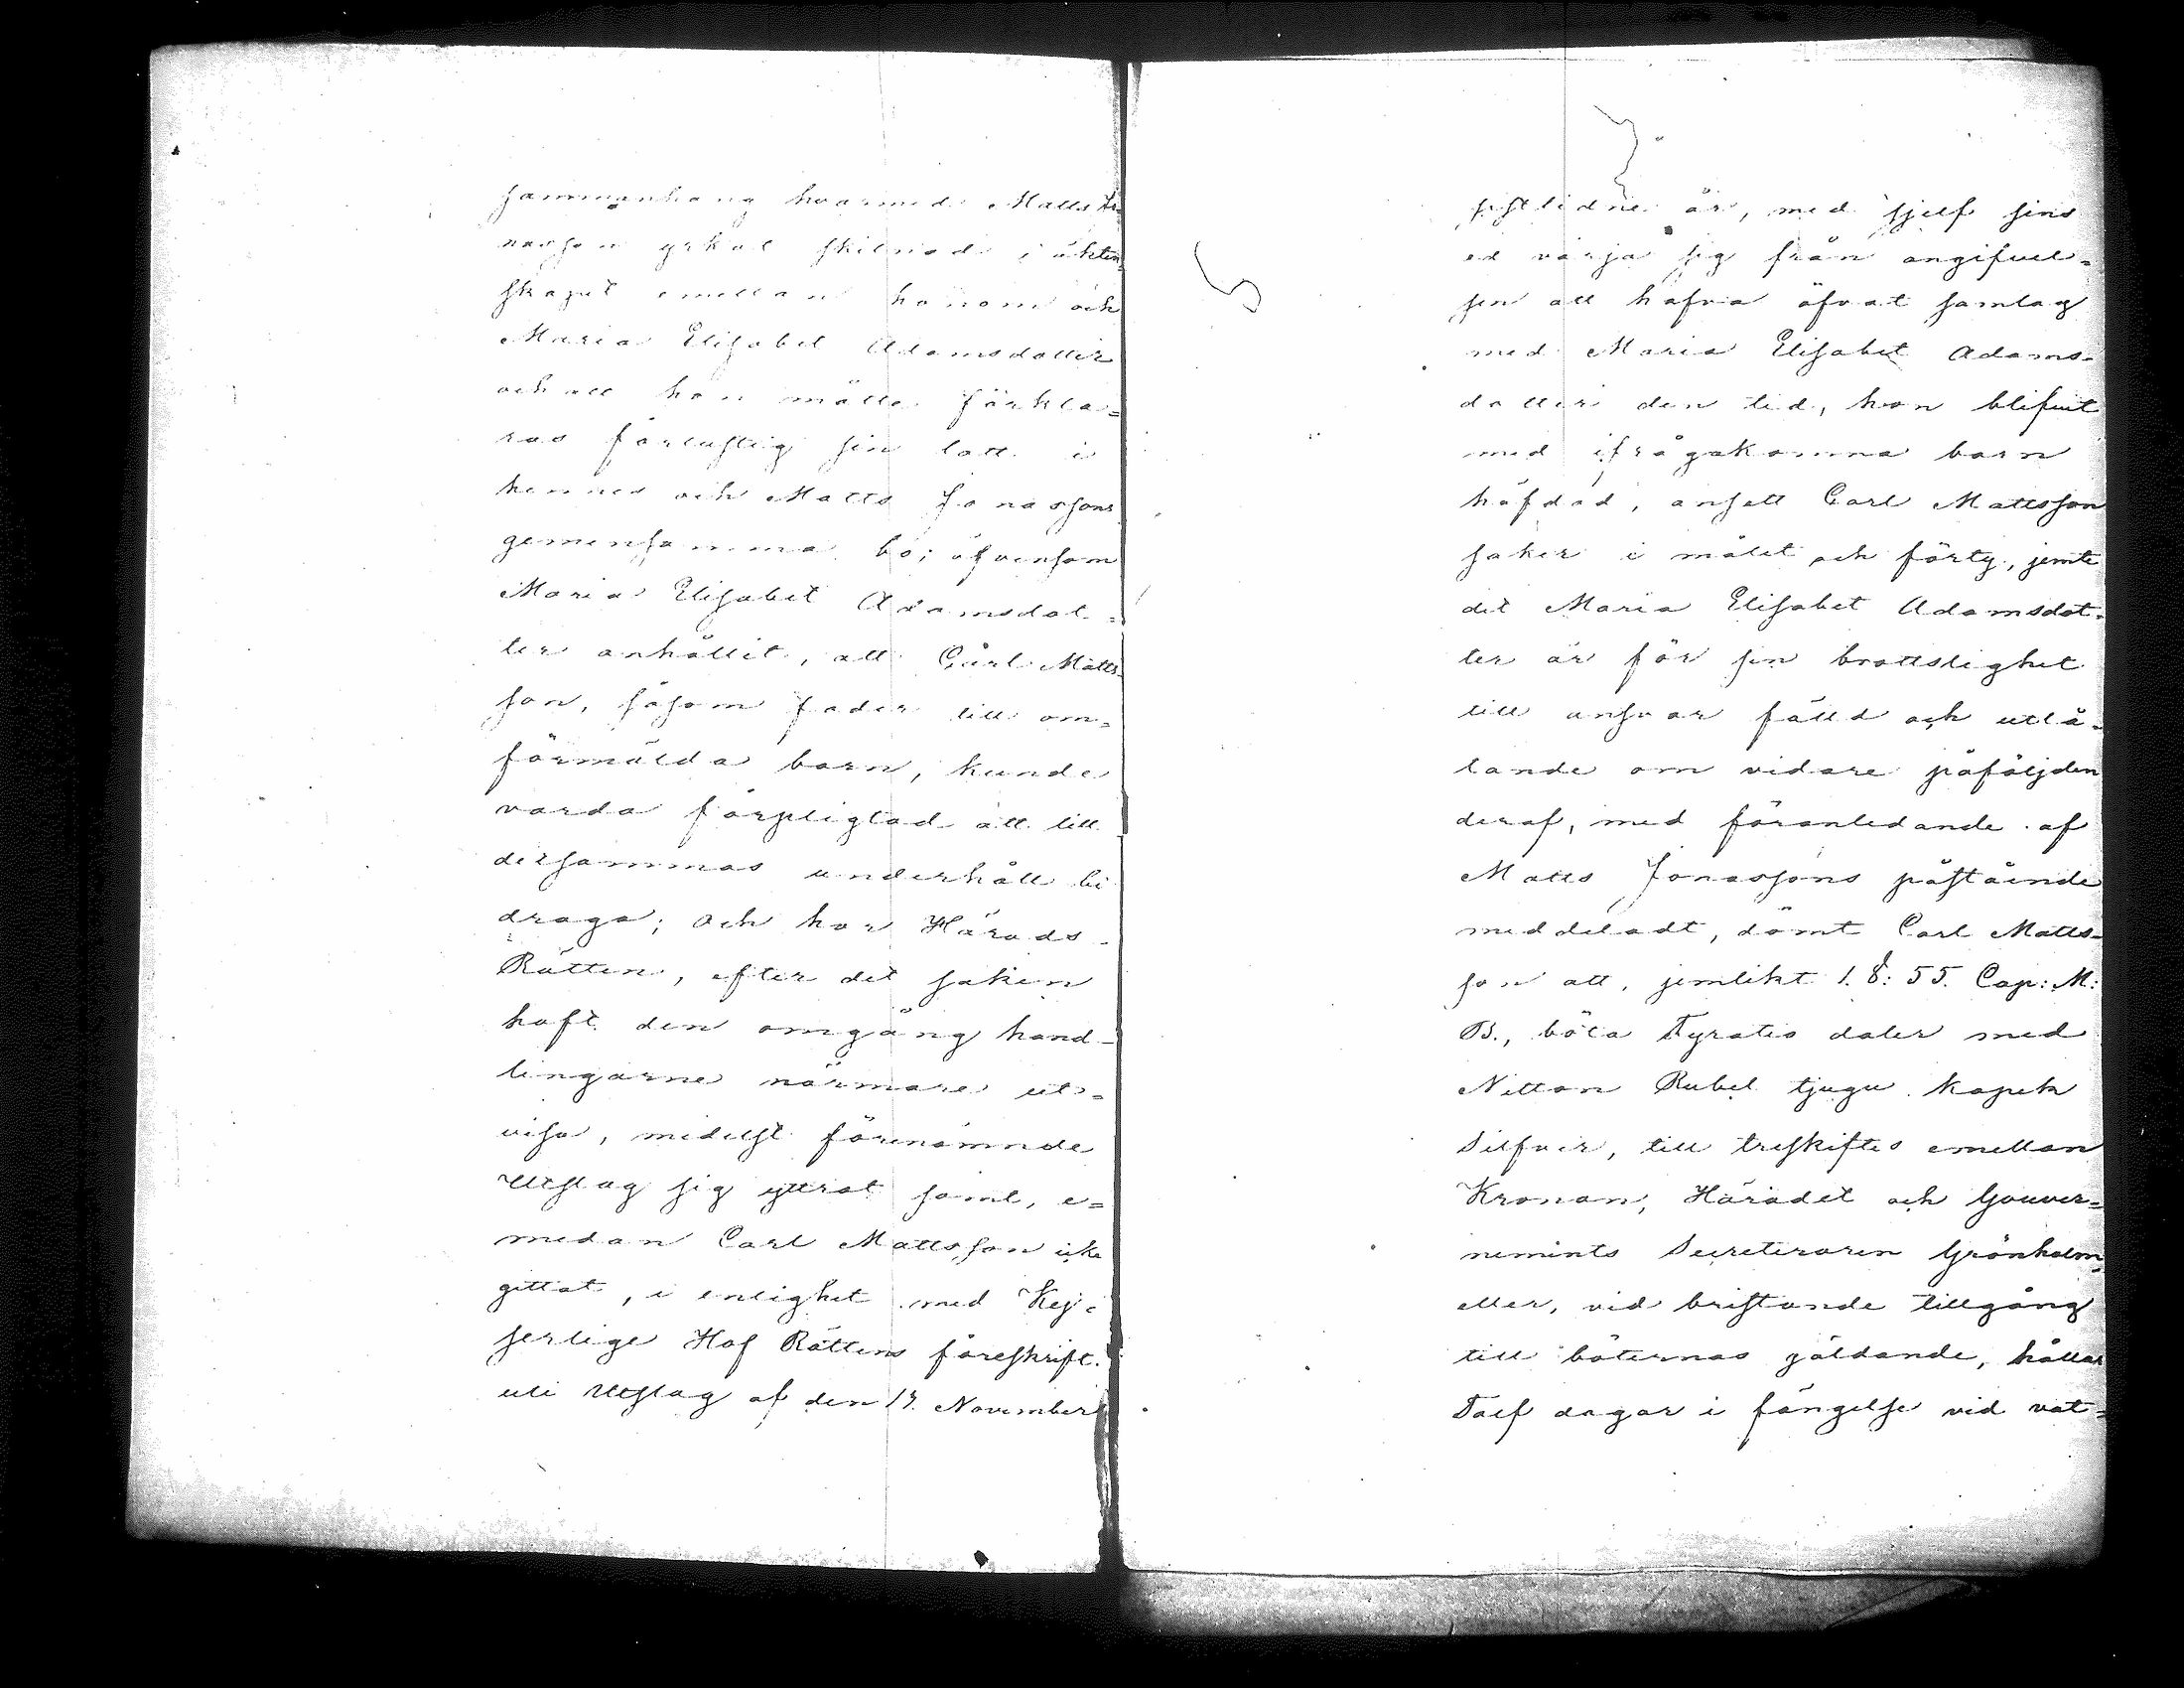 sammanhang hvarmed Matts Jo-
nasson yrkat skilnad i äkten-
skapet emellan honom och
Maria Elisabet Adamsdotter
och att hon måtte förkla=
ras förlustig sin lott i
hennes och Matts Jonassons
gemensamma bo; äfvensom
Maria Elisabet Adamsdot=
ter anhållit, att Carl Matts-
son, såsom fader till om=
förmälda barn, kunde
varda förpligtad att till
detsammas underhåll bi
draga; och har Härads-
Rätten, efter det saken
haft den omgång hand-
lingarne närmare ut=
visa, medelst förenämnde
Utslag sig yttrat samt, e=
medan Carl Mattsson icke
gittat, i enlighet med Kej-
serlige Hof Rättens föreskrift
uti Utslag af den 17. November
sistlidne år, med sjelf sins
ed värja sig från angifvel=
sen att hafva öfvat samlag
med Maria Elisabet Adams-
dotter den tid, hon blifvit
med ifrågakomna barn
häfdad, ansett Carl Mattsson
saker i målet och förty, jemte
det Maria Elisabet Adamsdot-
ter är för sin brottslighet
till ansvar fälld och utlå-
tande om vidare påföljden
deraf, med föranledande af
Matts Jonassons påstående
meddeladt, dömt Carl Matts-
son att, jemlikt 1. §: 55. Cap: M:
B., böta Åttatio daler med
Nitton Rubel tjugu kopek
Silfver, till treskiftes emellan
Kronan, Häradet och Gouver=
nements Secreteraren Grönholm,
eller, vid bristande tillgång
till böternas gäldande, hållas
Tolf dagar i fängelse vid vat=